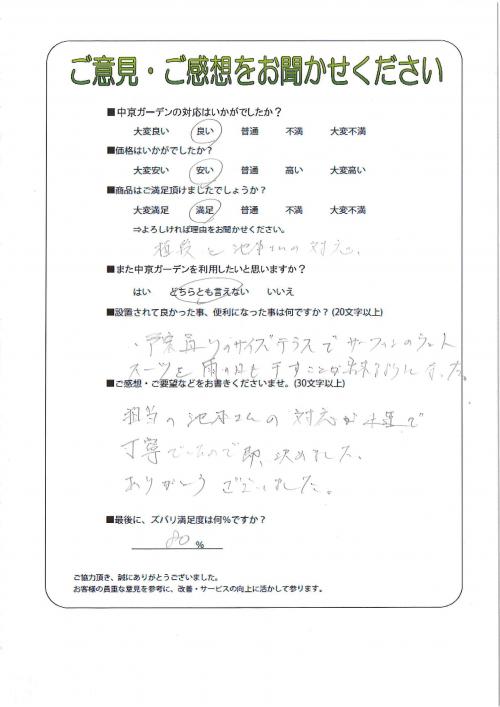 ご意見・ご感想をお聞かせください
■中京ガーデンの対応はいかがでしたか？
大変良い 良い 普通 不満 大変不満
■価格はいかがでしたか？
大変安い 安い 普通 高い 大変高い
■商品はご満足頂けましたでしょうか？
大変満足 満足 普通 不満 大変不満
⇒よろしければ理由をお聞かせください。
値段と池本さんの対応。
■また中京ガーデンを利用したいと思いますか？
はい どちらとも言えない いいえ
■設置されて良かった事、便利になった事は何ですか？ (20文字以上)
・予定通りのサイズテラスでサーフィンのウェット
スーツを雨の日も干すことが出来るようになった。
■ご感想・ご要望などをお書きくださいませ。(30文字以上)
担当の池本さんの対応が で
丁寧でしたので即、決めました、
ありがとうございました。
■最後に、ズバリ満足度は何％ですか？
80 %
ご協力頂き、誠にありがとうございました。
お客様の貴重な意見を参考に、改善・サービスの向上に活かして参ります。